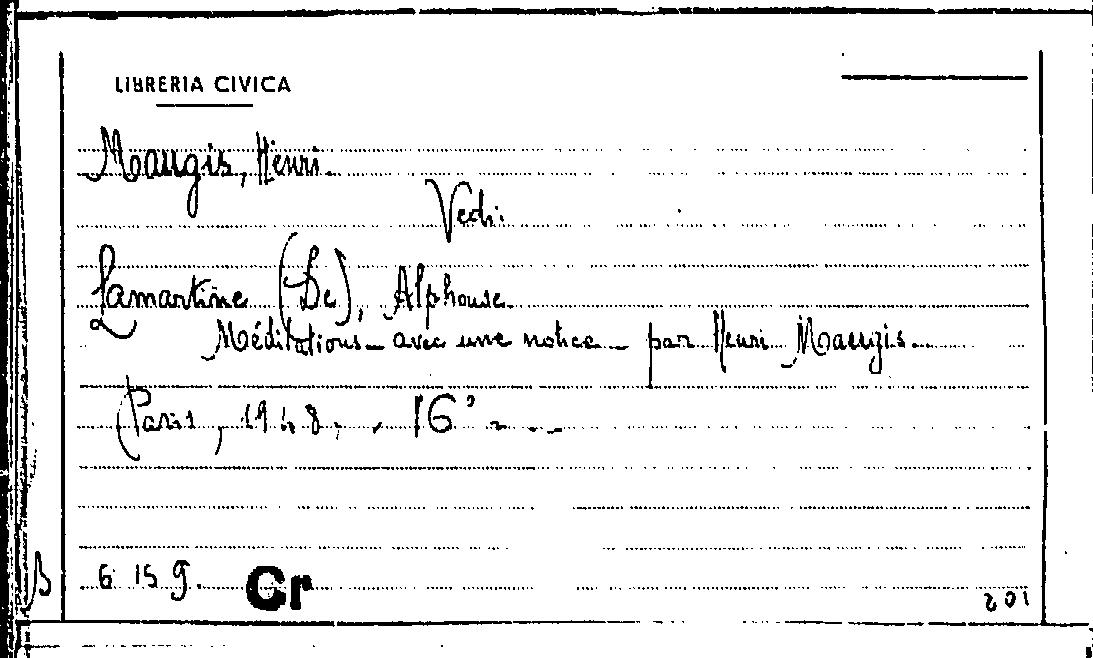 LIBRERIA CIVICA
Maugis, Henri.
Vedi:
Lamartine (De), Alphonse.
Méditations - avec une notice - par Henri Maugis.
(Paris, 1948, 16°
B 6 15 9. Cr
201